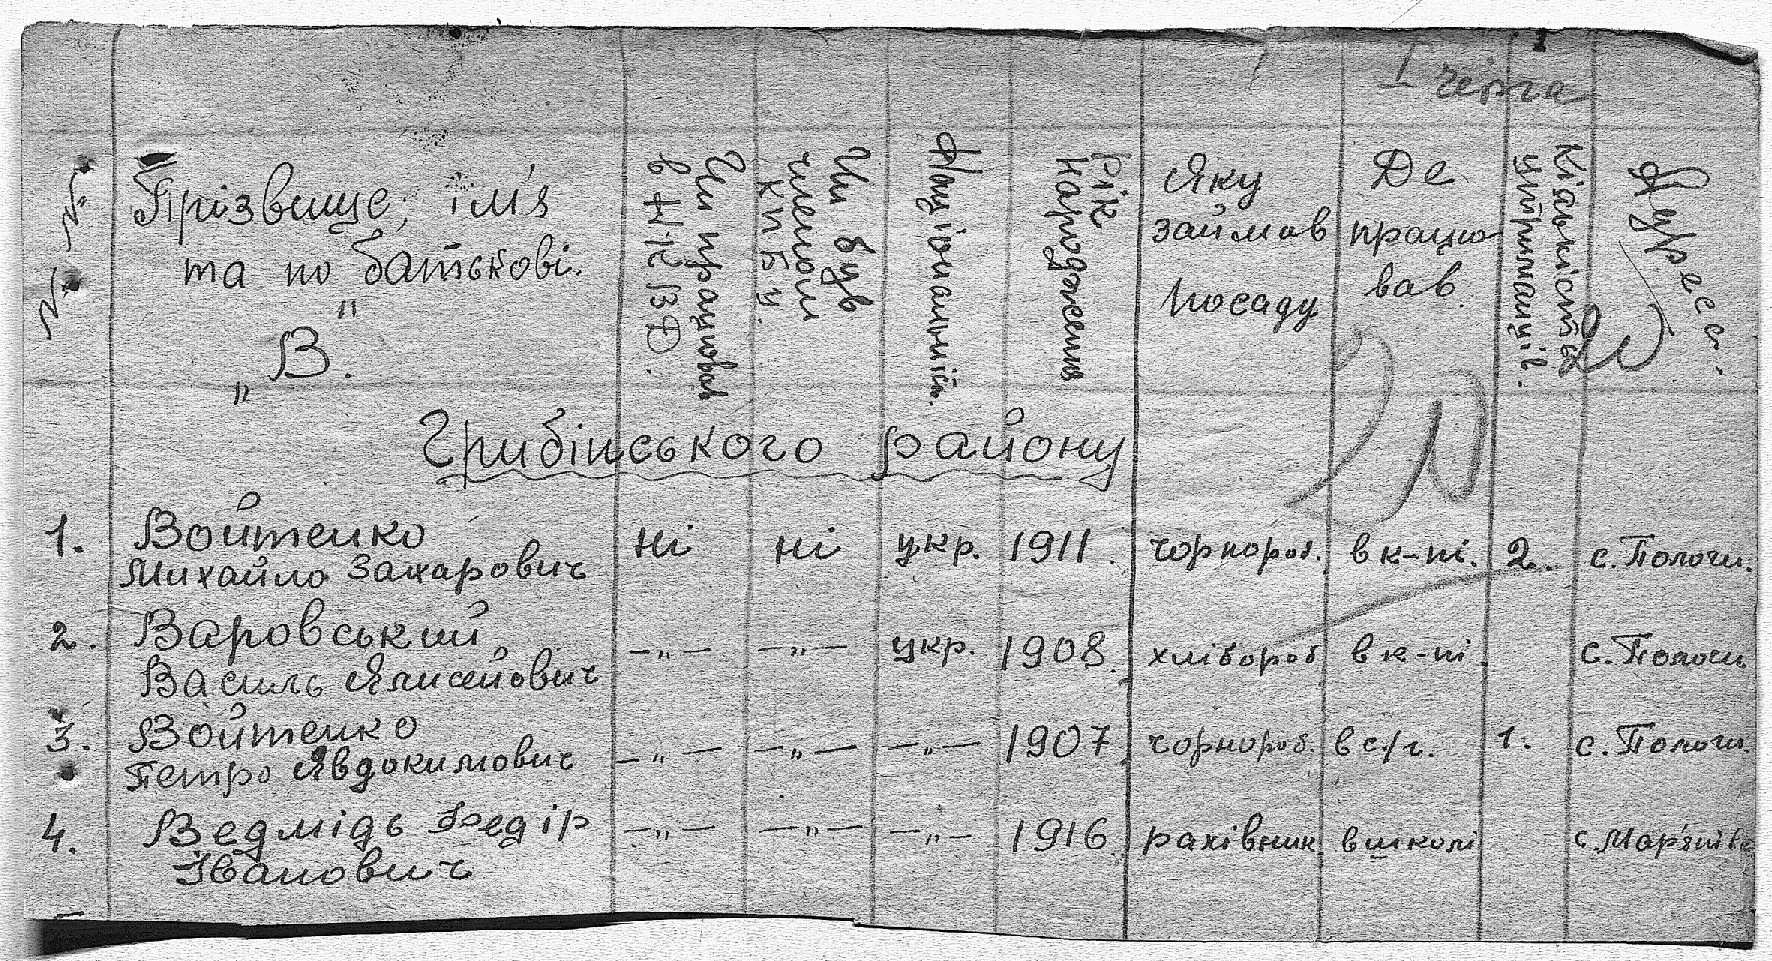 І черга
№ №
Прізвище, ім'я
та по батькові.
"В".
Чи працював
в НКВД.
Чи був
членом
КПБУ.
Національність.
Рік
народження
Яку
займав
посаду
Де
працю-
вав.
Кількість
утриманців.
Адреса.
20
Грибінського району
1. Войтенко ні ні укр. 1911. чорнороб. в к-пі. 2. с. Пологи.
Михайло Захарович
2. Варовський —"— —"— укр. 1908. хлібороб в к-пі. с. Пологи
Василь Ялисейович
3. Войтенко —"— —"— —"— 1907. чорнороб. в с/г. 1. с. Пологи.
Петро Явдокимович
4. Ведмідь Федір —"— —"— —"— 1916. рахівник в школі с. Мар'янівка
Іванович